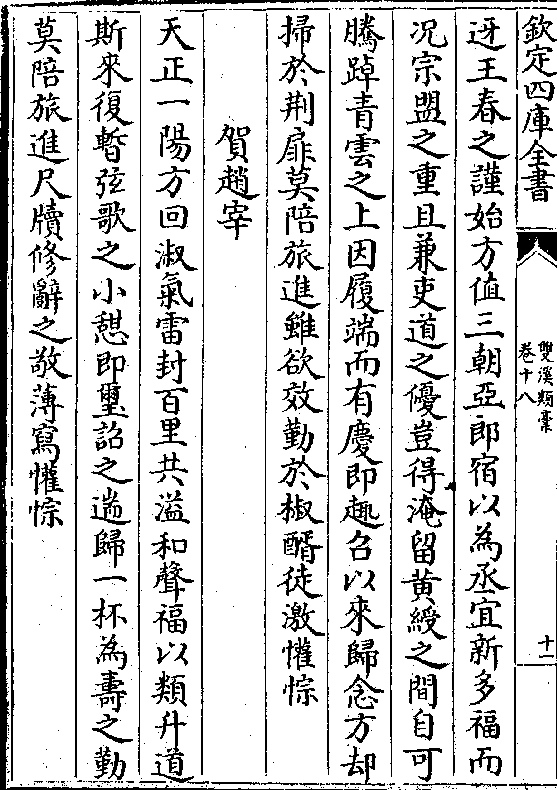 欽定四庫全書
雙溪類稾
卷十八
十一
迓王春之謹始方值三朝亞郎宿以為丞宜新多福而
况宗盟之重且兼吏道之優豈得淹留黄綬之間自可
騰踔青雲之上因履端而有慶即趣召以來歸念方却
掃於荆扉莫陪旅進雖欲效勤於椒醑徒激懽悰
賀趙宰
天正一陽方回淑氣雷封百里共溢和聲福以類升道
斯來復暫弦歌之小憇即璽詔之遄歸一杯為壽之勤
莫陪旅進尺牘修辭之敬薄寫懽悰